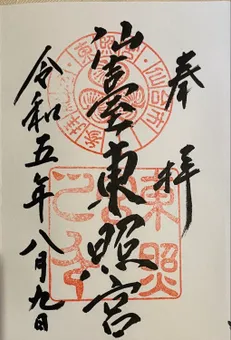 奉拝
仙臺東照宮
令和五年八月九日